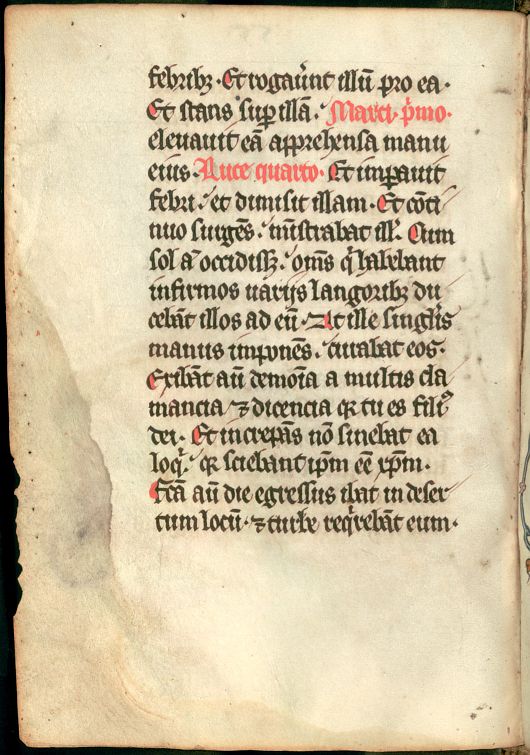 febribꝫ · Et rogaűnt illū pro ea ·
Et stans suꝑ illā . Marci p̄mo ·
eleuauit eā apprehensa manu
eius · Luce quarto · Et imꝑauit
febri . et dimisit illam · Et cōti
nuo surgēs . mīstrabat illꝭ . Cum
sol aͫ occidissꝫ . om̄s q̇ habebant
infirmos uarijs langoribꝫ du
cebāt illos ad eū · At ille singl̄is
manus imponēs . curabat eos ·
Exibāt aū demoīa a multis cla
mancia ⁊ dicencia qꝛ tu es filiꝰ
dei · Et increpās nō sinebat ea
loq̇ . qꝛ sciebant ip̄m eē xp̄m ·
Fc̄ā aū die egressus ibat in deser
tum locū · ⁊ turbe req̇rebāt eum ·